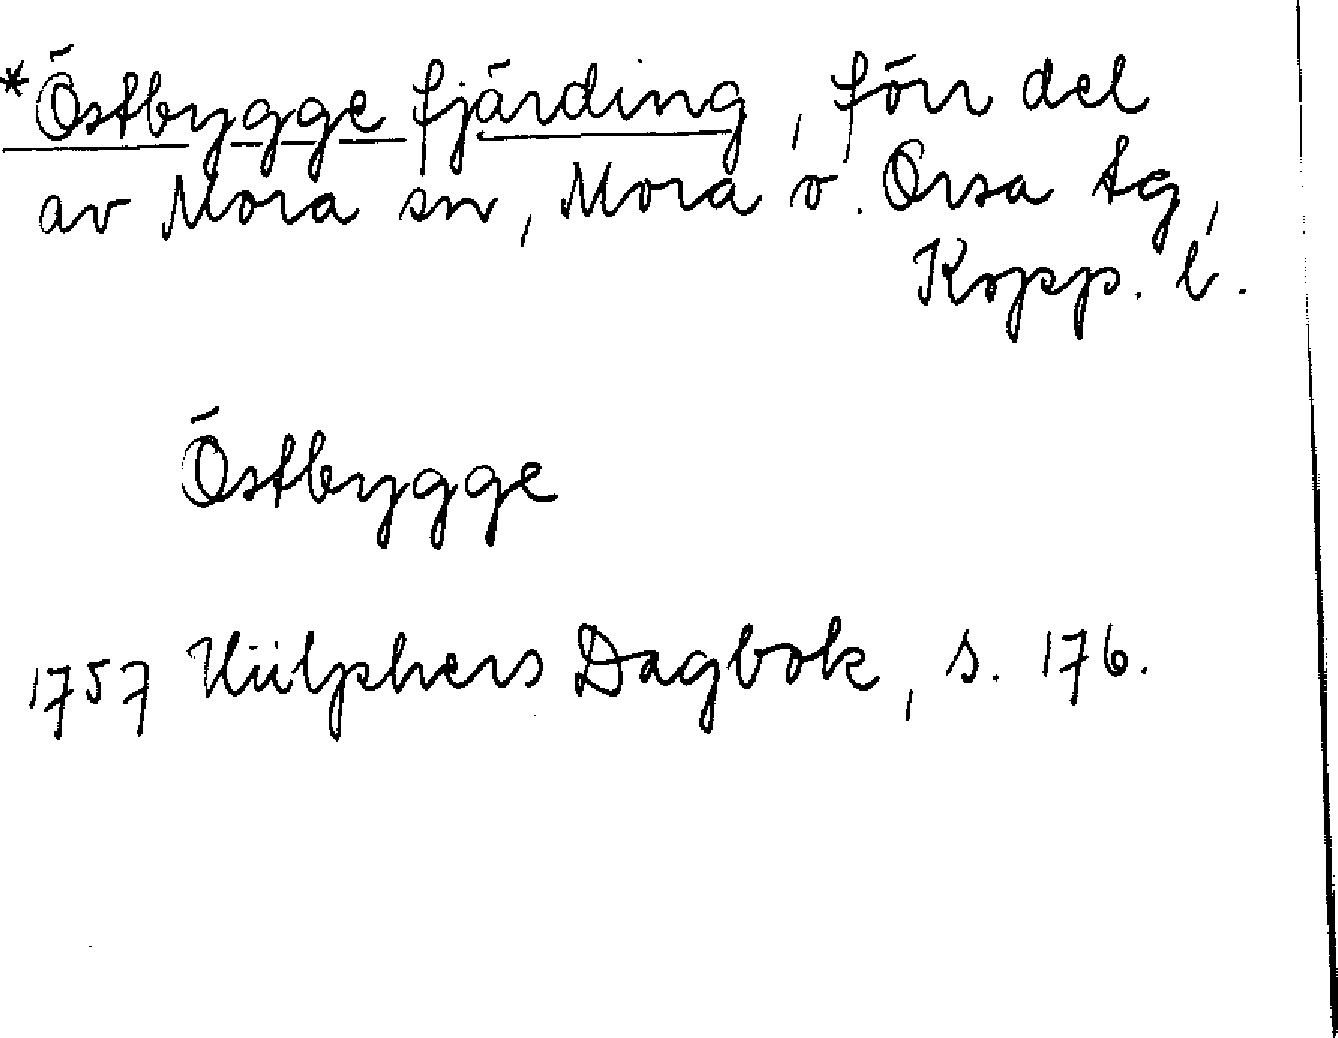 *Östbygge fjärding, förr del
av Mora sn, Mora o. Orsa tg,
Kopp. l.
Östbygge
1757 Hülphers Dagbok, s. 176.